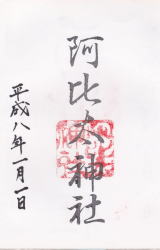 阿比太神社
平成八年一月一日